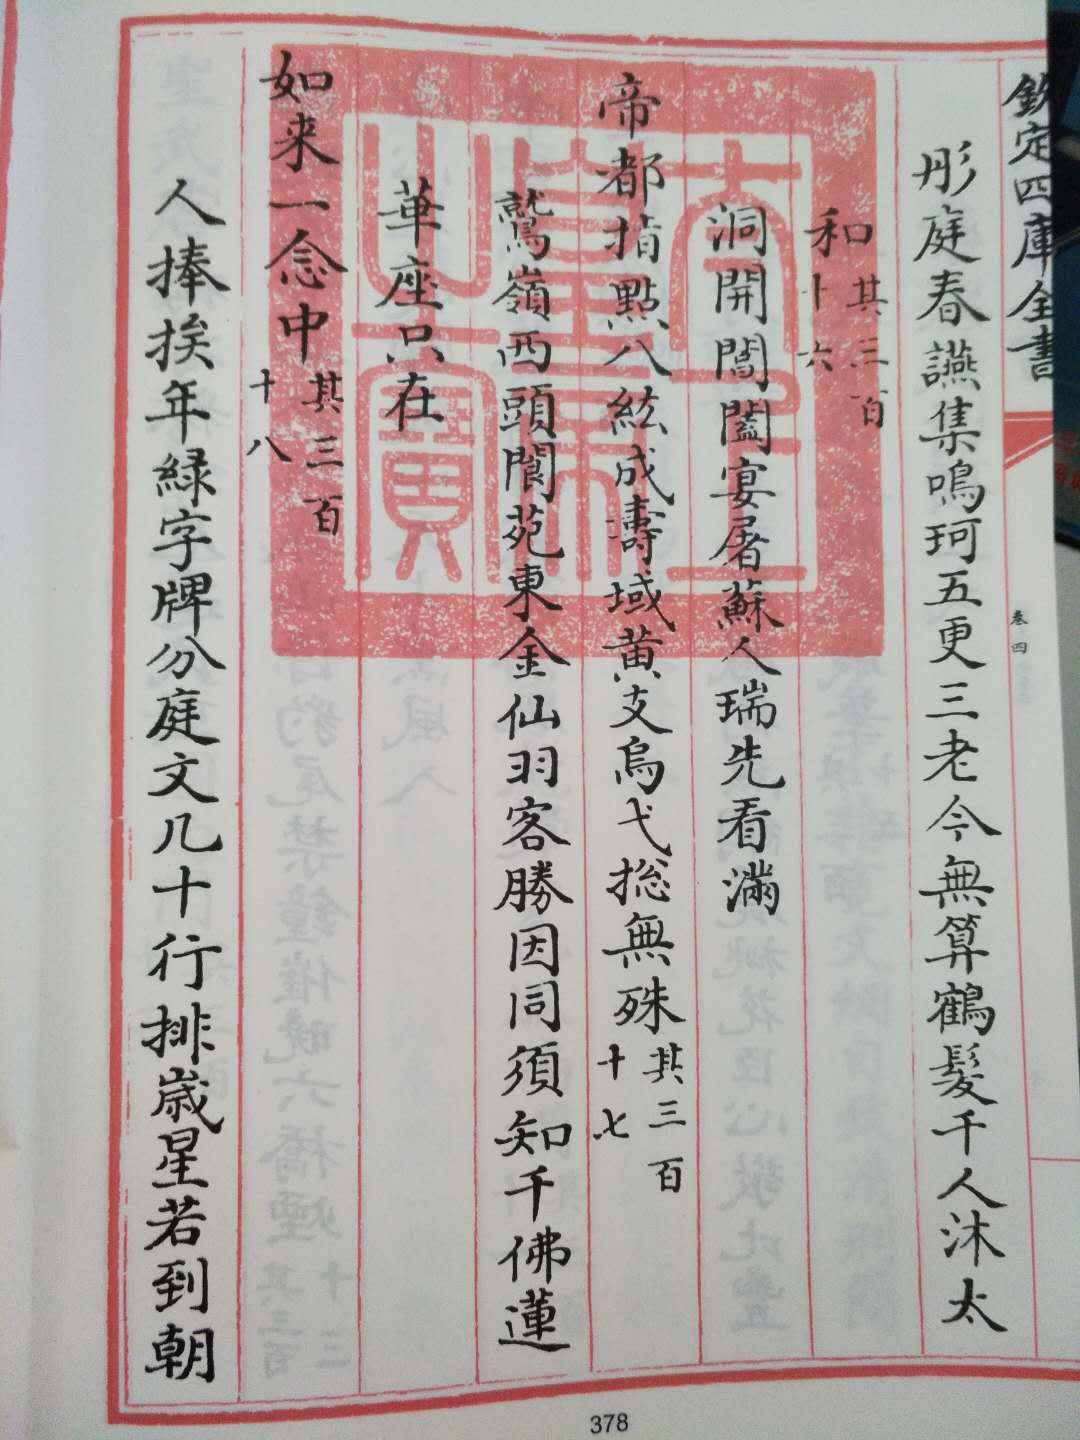 欽定四庫全書
卷四
彤庭春讌集鳴珂五更三老今無算鶴髮千人沐太
和其三百十六
洞開閶闔宴屠蘇人瑞先看滿
帝都指點八紘成壽域黃支烏弋総無殊其三百十七
鷲嶺西頭閬苑東金仙羽客勝因同須知千佛蓮
華座只在
如来一念中其三百十八
人捧挨年緑字牌分庭文几十行排歲星若到朝
太上皇帝之寶
378